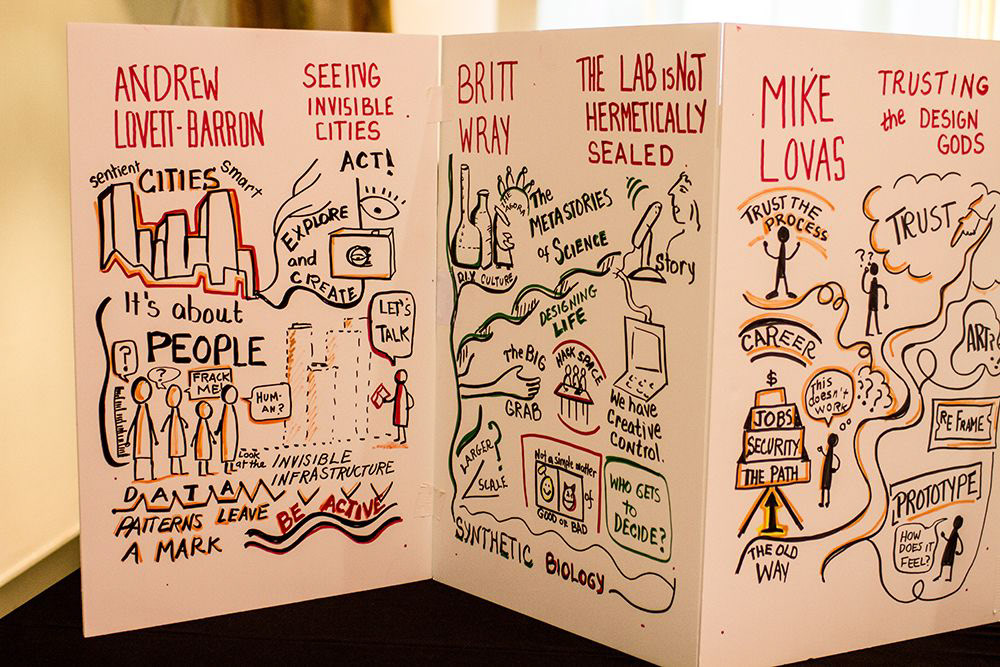 ANDREW
LOVETT-BARRON
SEEING
INVISIBLE
CITIES
sentient CITIES smart
ACT!
EXPLORE
and
CREATE
It's about
PEOPLE
LET'S
TALK
?
?
FRACK
ME!
HUM-
AN?
Look
at the INVISIBLE
INFRASTRUCTURE
DATA
PATTERNS LEAVE
A MARK
BE ACTIVE
BRITT
WRAY
THE LAB IS NOT
HERMETICALLY
SEALED
AGORA
The
METASTORIES
of SCIENCE
DIY CULTURE
Story
DESIGNING
LIFE
the BIG
GRAB
HACK SPACE
We have
Creative
Control.
LARGER?
SCALE
Not a simple matter
of
GOOD or BAD
WHO GETS
to
DECIDE?
SYNTHETIC BIOLOGY
MIKE
LOVAS
TRUSTING
the DESIGN
GODS
TRUST THE
PROCESS
TRUST
??
CAREER
ART?
$
JOBS
SECURITY
THE PATH
THE OLD
WAY
This
doesn't
WORK
RE FRAME
PROTOTYPE
HOW
DOES IT
FEEL?